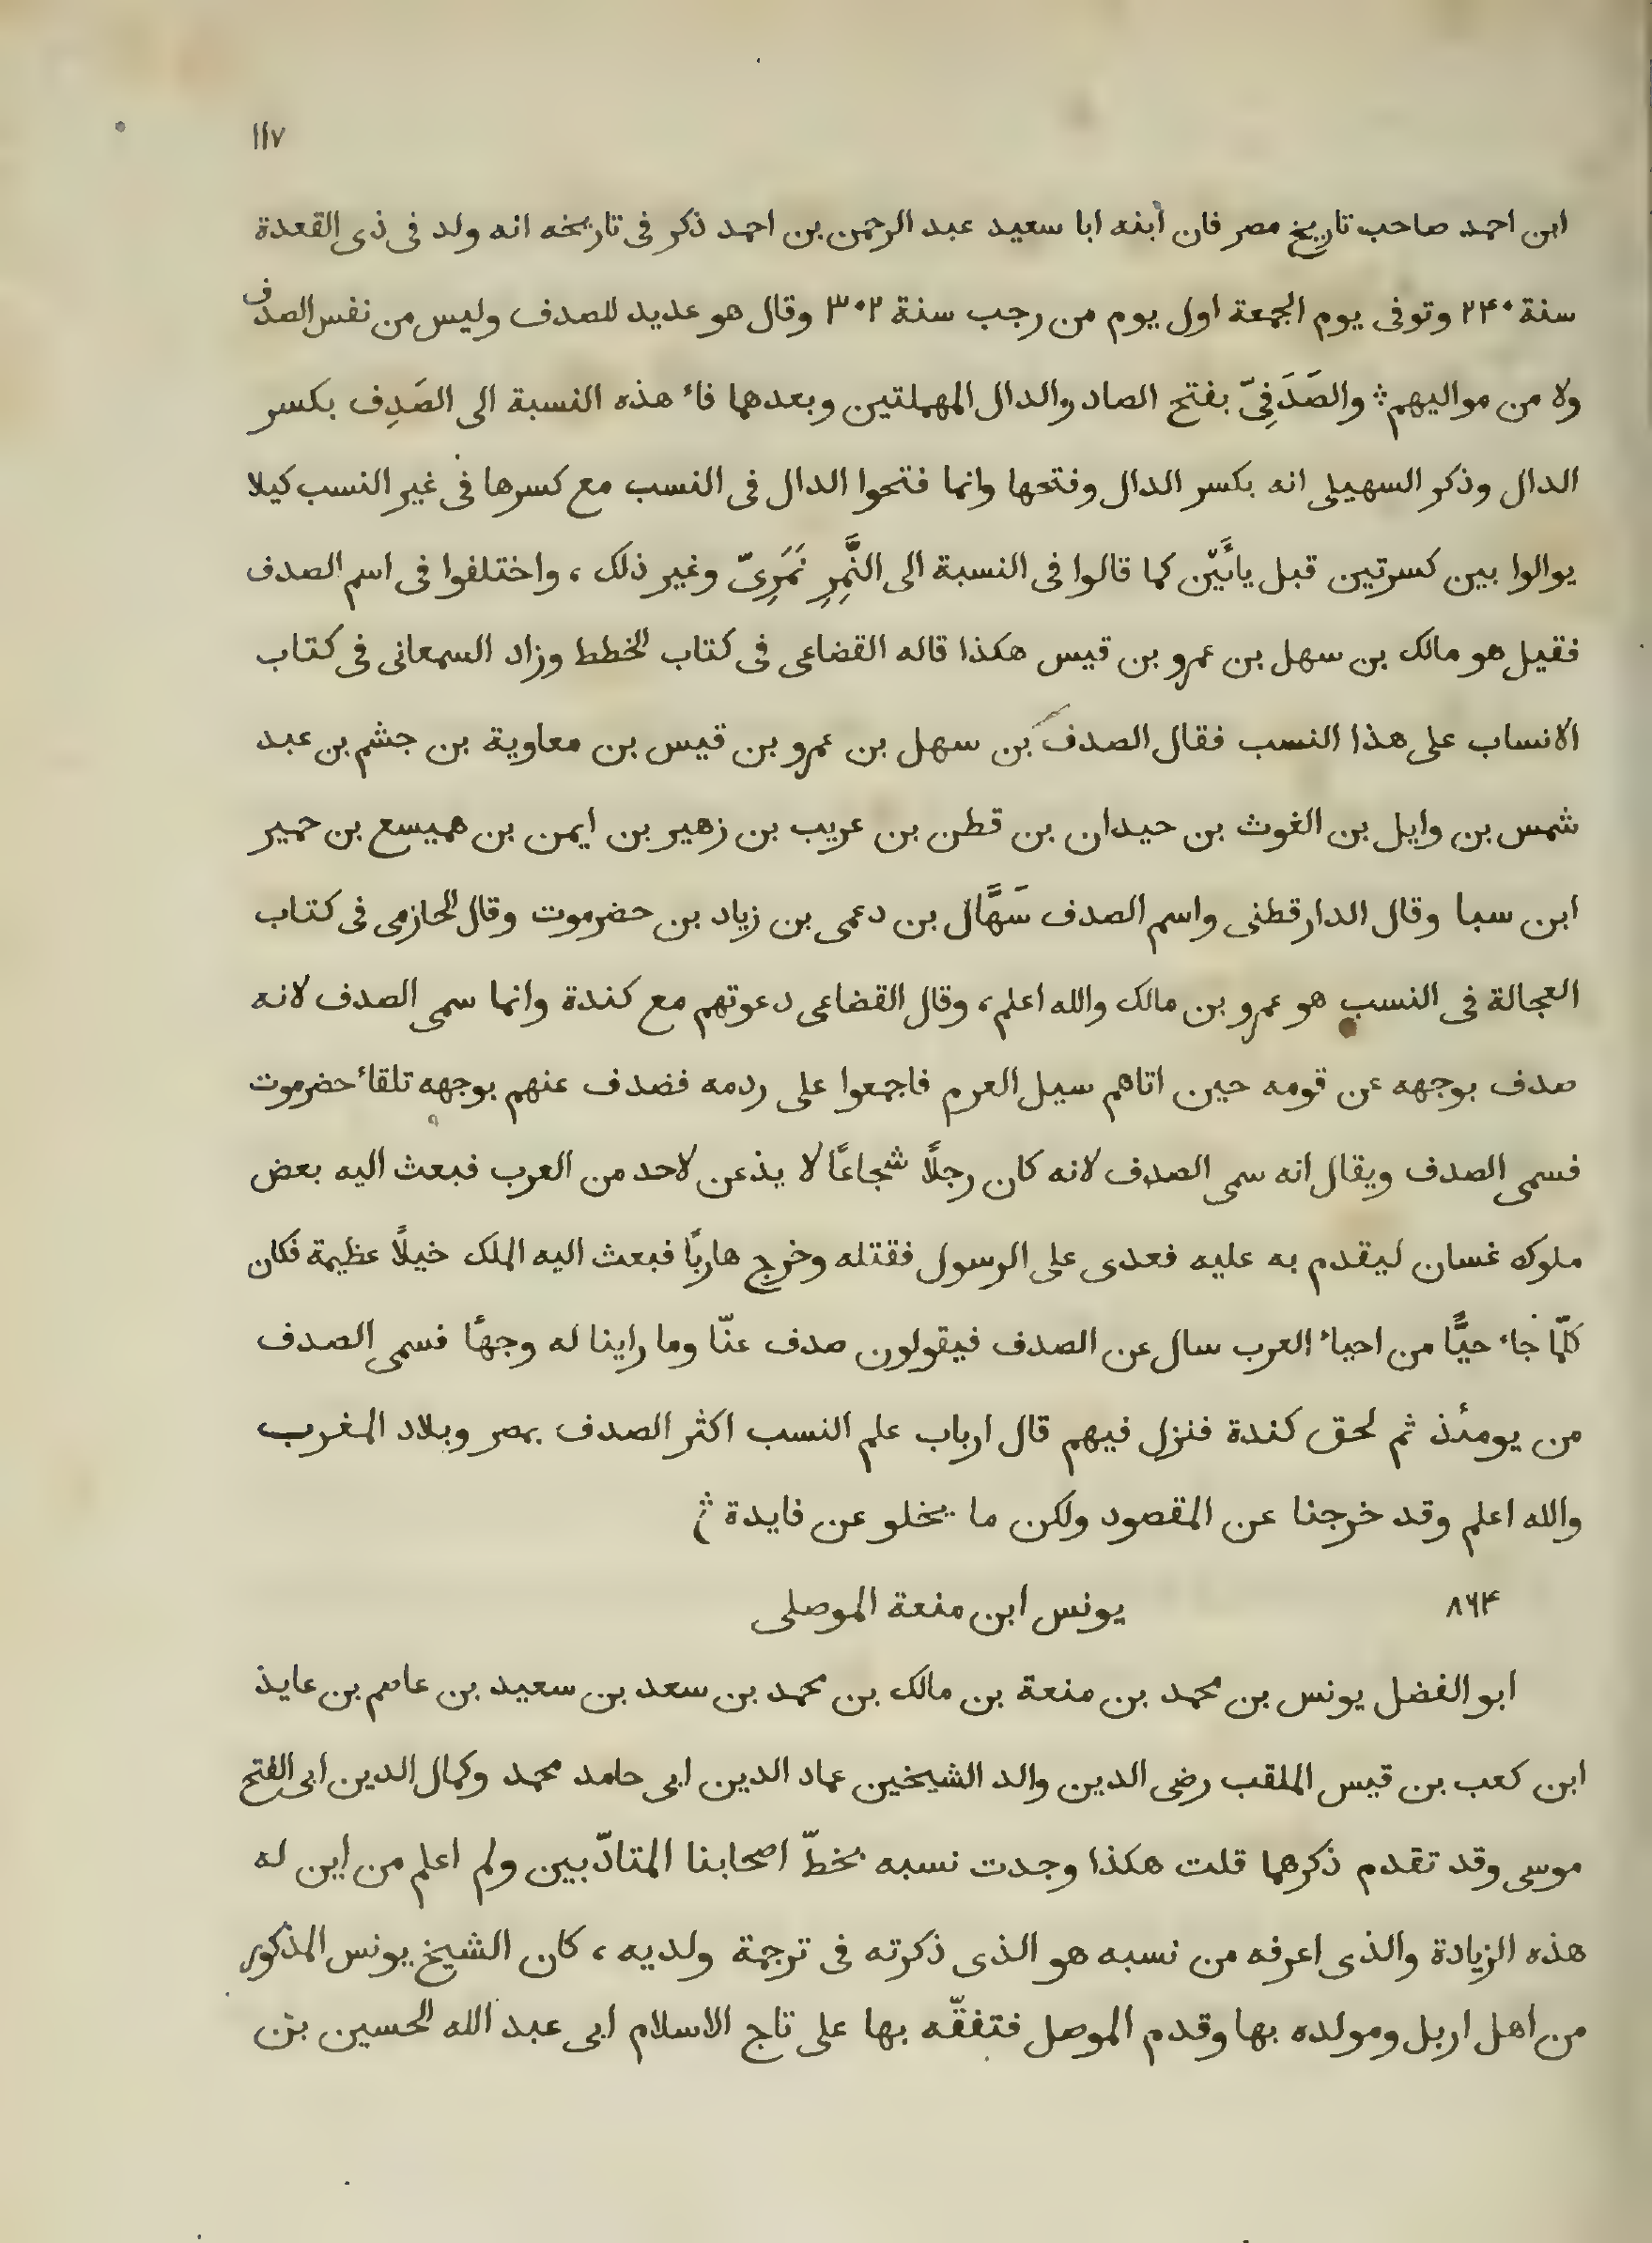 ١١٧
ابن احمد صاحب تاريخ مصر فان ابنه ابا سعيد عبد الرحمن بن احمد ذكر فى تاريخه انه ولد فى ذى القعدة
سنة ٢۴٠ وتوفى يوم الجمعة اول يوم من رجب سنة ٣٠٢ وقال هو عديد للصدف وليس من نفس الصدف
ولا من مواليهم ؛ والصَدَفِىّ بفتح الصاد والدال المهملتين وبعدهما فاء هذه النسبة الى الصَدِف بكسر
الدال وذكر السهيلى انه بكسر الدال وفتحها وانما فتحوا الدال فى النسب مع كسرها فى غير النسب كيلا
يوالوا بين كسرتين قبل يائَيْن كما قالوا فى النسبة الى النَّمِرِ نَمَرِىّ وغير ذلك ، واختلفوا فى اسم الصدف
فقيل هو مالك بن سهل بن عمرو بن قيس هكذا قاله القضاعى فى كتاب الخطط وزاد السمعانى فى كتاب
الانساب على هذا النسب فقال الصدف بن سهل بن عمرو بن قيس بن معاوية بن جشم بن عبد
شمس بن وايل بن الغوث بن حيدان بن قطن بن عريب بن زهير بن ايمن بن هميسع بن حمير
ابن سبا وقال الدارقطنى واسم الصدف سَهَّال بن دعمى بن زياد بن حضرموت وقال الحازمى فى كتاب
العجالة فى النسب هو عمرو بن مالك والله اعلم ، وقال القضاعى دعوتهم مع كندة وانما سمى الصدف لانه
صدف بوجهه عن قومه حين اتاهم سيل العرم فاجمعوا على ردمه فصدف عنهم بوجهه تلقاء حضرموت
فسمى الصدف ويقال انه سمى الصدف لانه كان رجلاً شجاعًا لا يذعن لاحد من العرب فبعث اليه بعض
ملوك غسان ليقدم به عليه فعدى على الرسول فقتله وخرج هاربًا فبعث اليه الملك خيلاً عظيمة فكان
كلّما جاء حيًّا من احياء العرب سال عن الصدف فيقولون صدف عنّا وما راينا له وجهًا فسمى الصدف
من يومئذ ثم لحق كندة فنزل فيهم قال ارباب علم النسب اكثر الصدف بمصر وبلاد المغرب
والله اعلم وقد خرجنا عن المقصود ولكن ما يخلو عن فايدة ؛
٨٦۴ يونس ابن منعة الموصلى
ابو الفضل يونس بن محمد بن منعة بن مالك بن محمد بن سعد بن سعيد بن عاصم بن عايذ
ابن كعب بن قيس الملقب رضى الدين والد الشيخين عماد الدين ابى حامد محمد وكمال الدين ابى الفتح
موسى وقد تقدم ذكرهما قلت هكذا وجدت نسبه بخطّ اصحابنا المتادّبين ولم اعلم من اين له
هذه الزيادة والذى اعرفه من نسبه هو الذى ذكرته فى ترجمة ولديه ، كان الشيخ يونس المذكور
من اهل اربل ومولده بها وقدم الموصل فتفقّه بها على تاج الاسلام ابى عبد الله الحسين بن